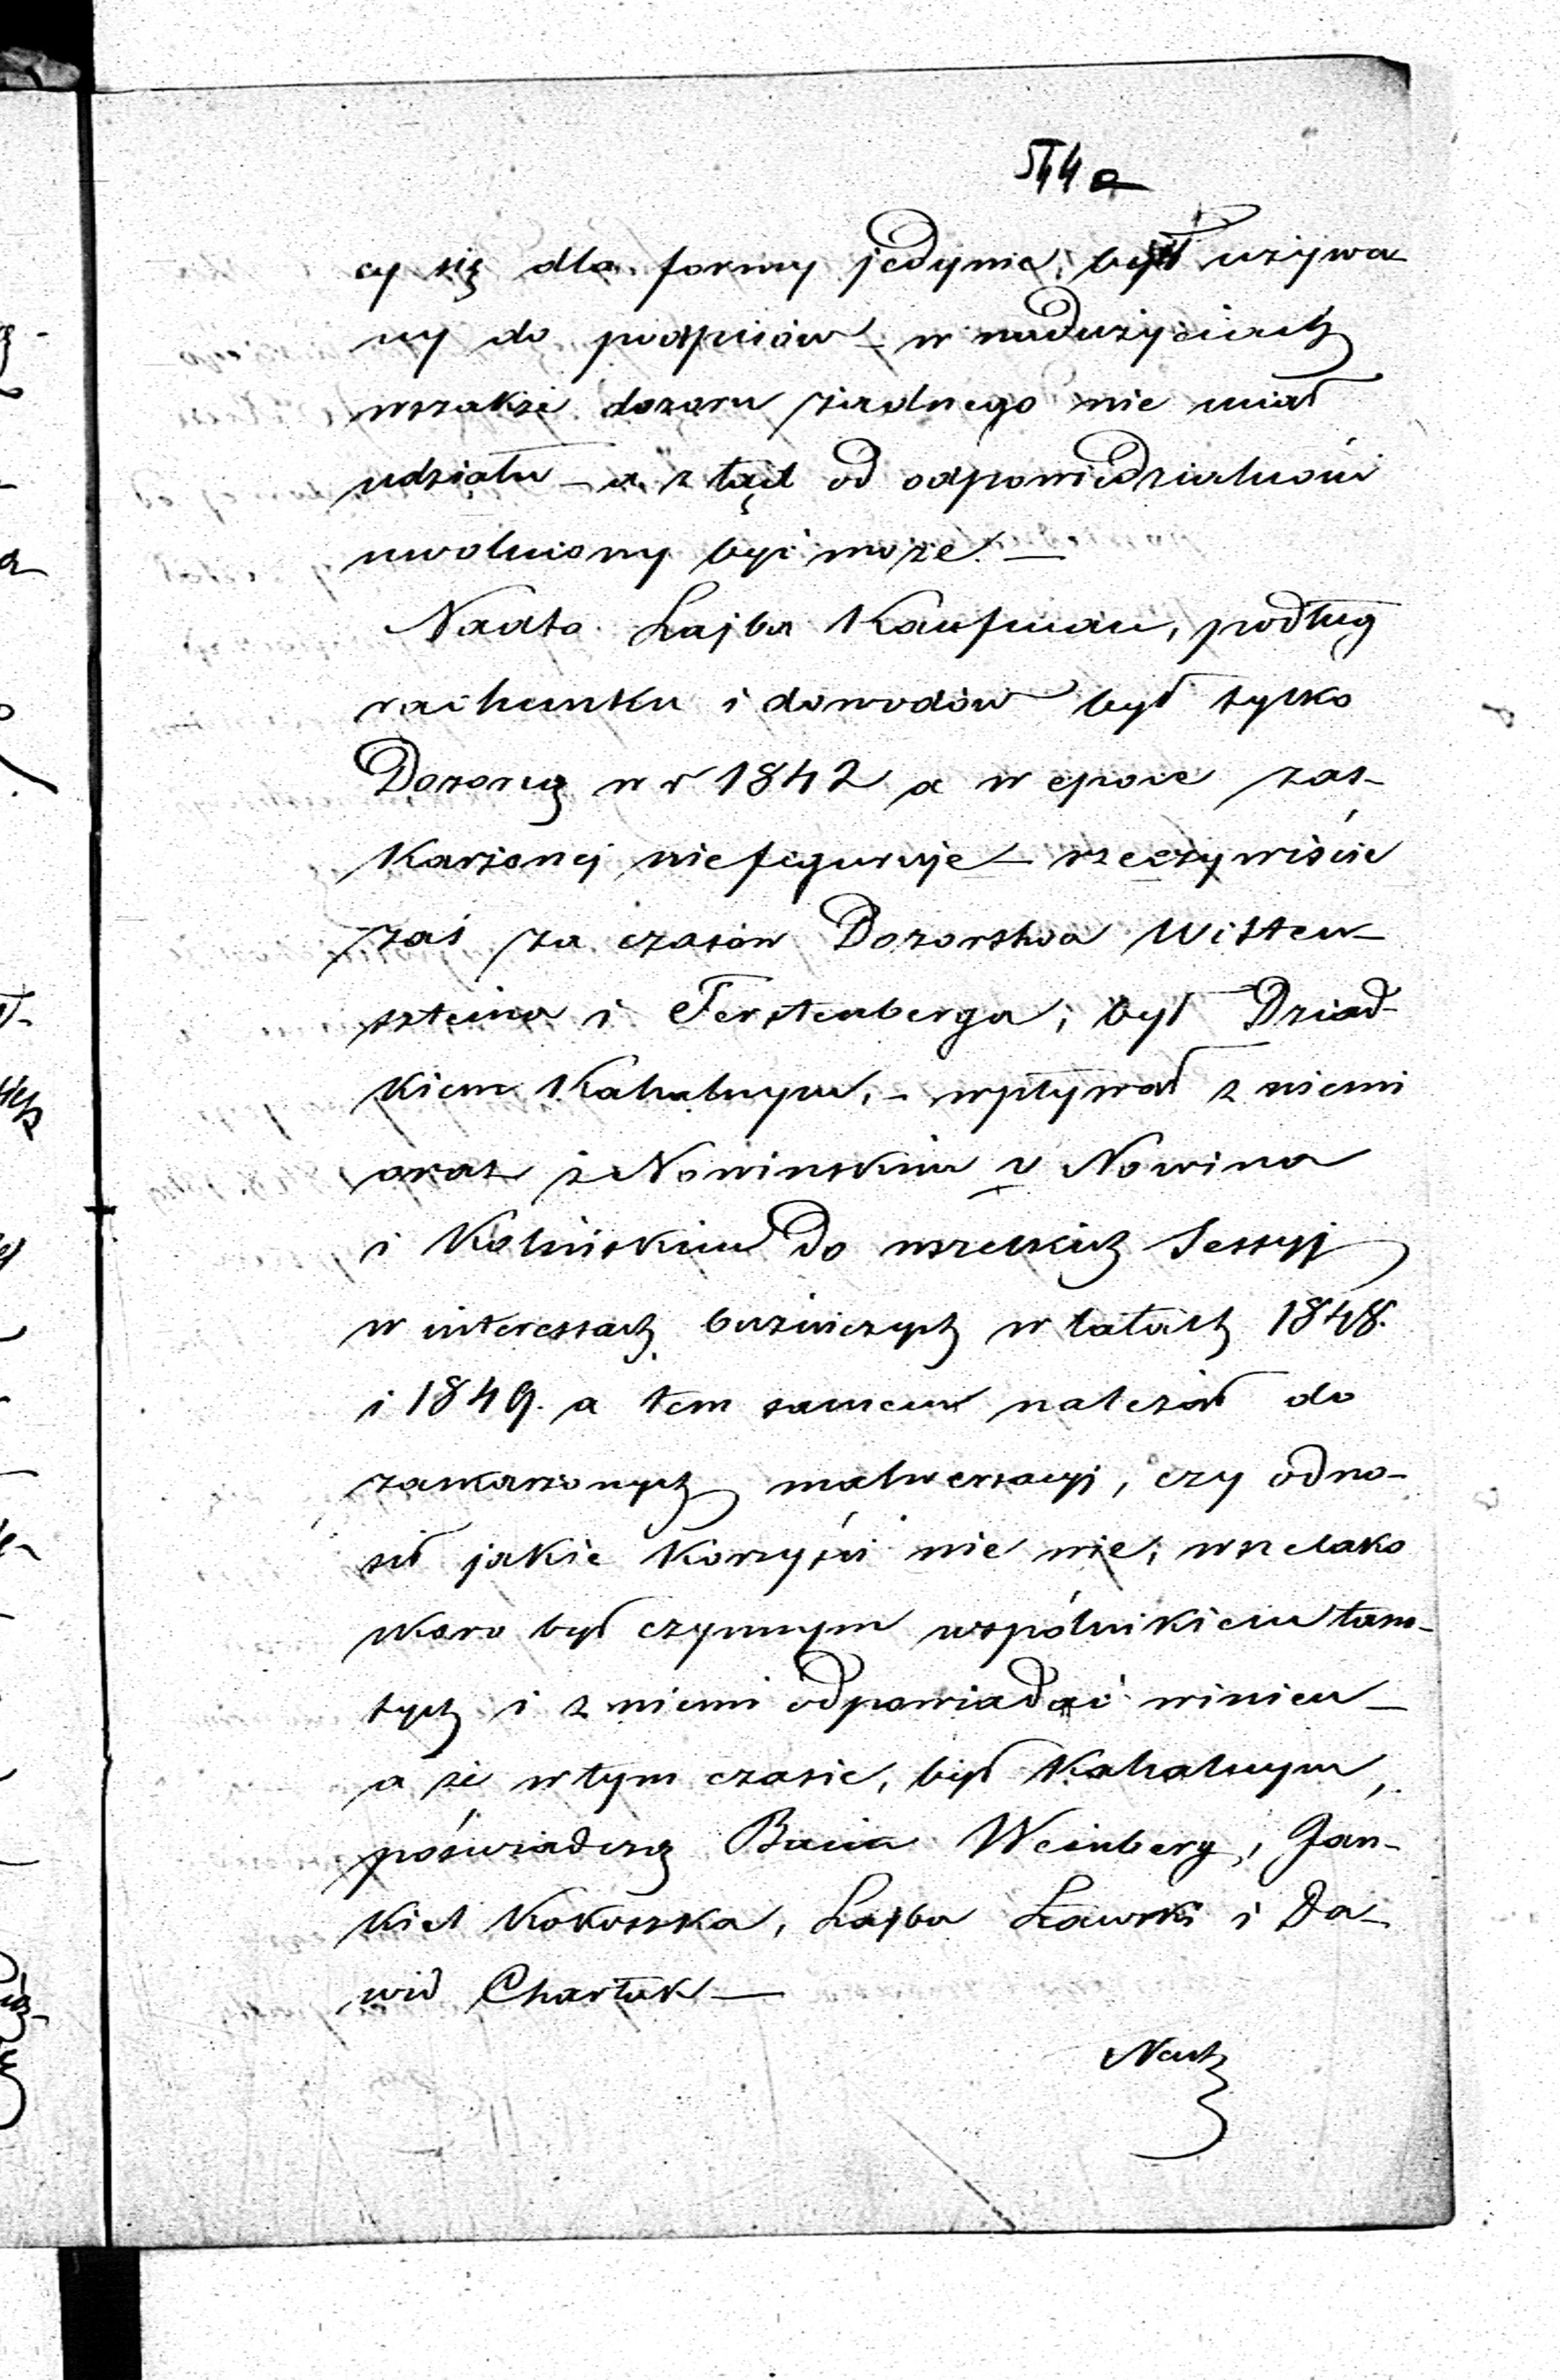 544 a
cy się dla formy jedynie, był używa
ny do podpisów – w nadużyciach
wszakże dozoru żadnego nie miał
udziału – a z tąd od odpowiedzialności
uwolniony być może. –
Nadto Lajba Kaufman, podług
rachunku i dowodów był tylko
Dozorcą w r 1842 a w epoce zas-
karżonej niefiguruje – rzeczywiście
zaś za czasów Dozorstwa Witten-
szteina i Fersztenberga, był Dziad-
kiem Kahalnym, – wpływał z niemi
oraz z Nowinskim v Nowina
i Kolńskim do wszelkich Sessyj
w interessach bużniczych w latach 1848.
i 1849. a tem samem należał do
zaskarżonych malwersacyi, czy odno-
sił jakie korzyści nie wie, wszelako
skoro był czynnym wspólnikiem tam-
tych i z niemi odpowiadać winien –
a że w tym czasie, był Kahalnym,
poświadczą Weinberg, Jan-
kiel Kokoszka, Lajba Ławski i Da-
wid Chartak –